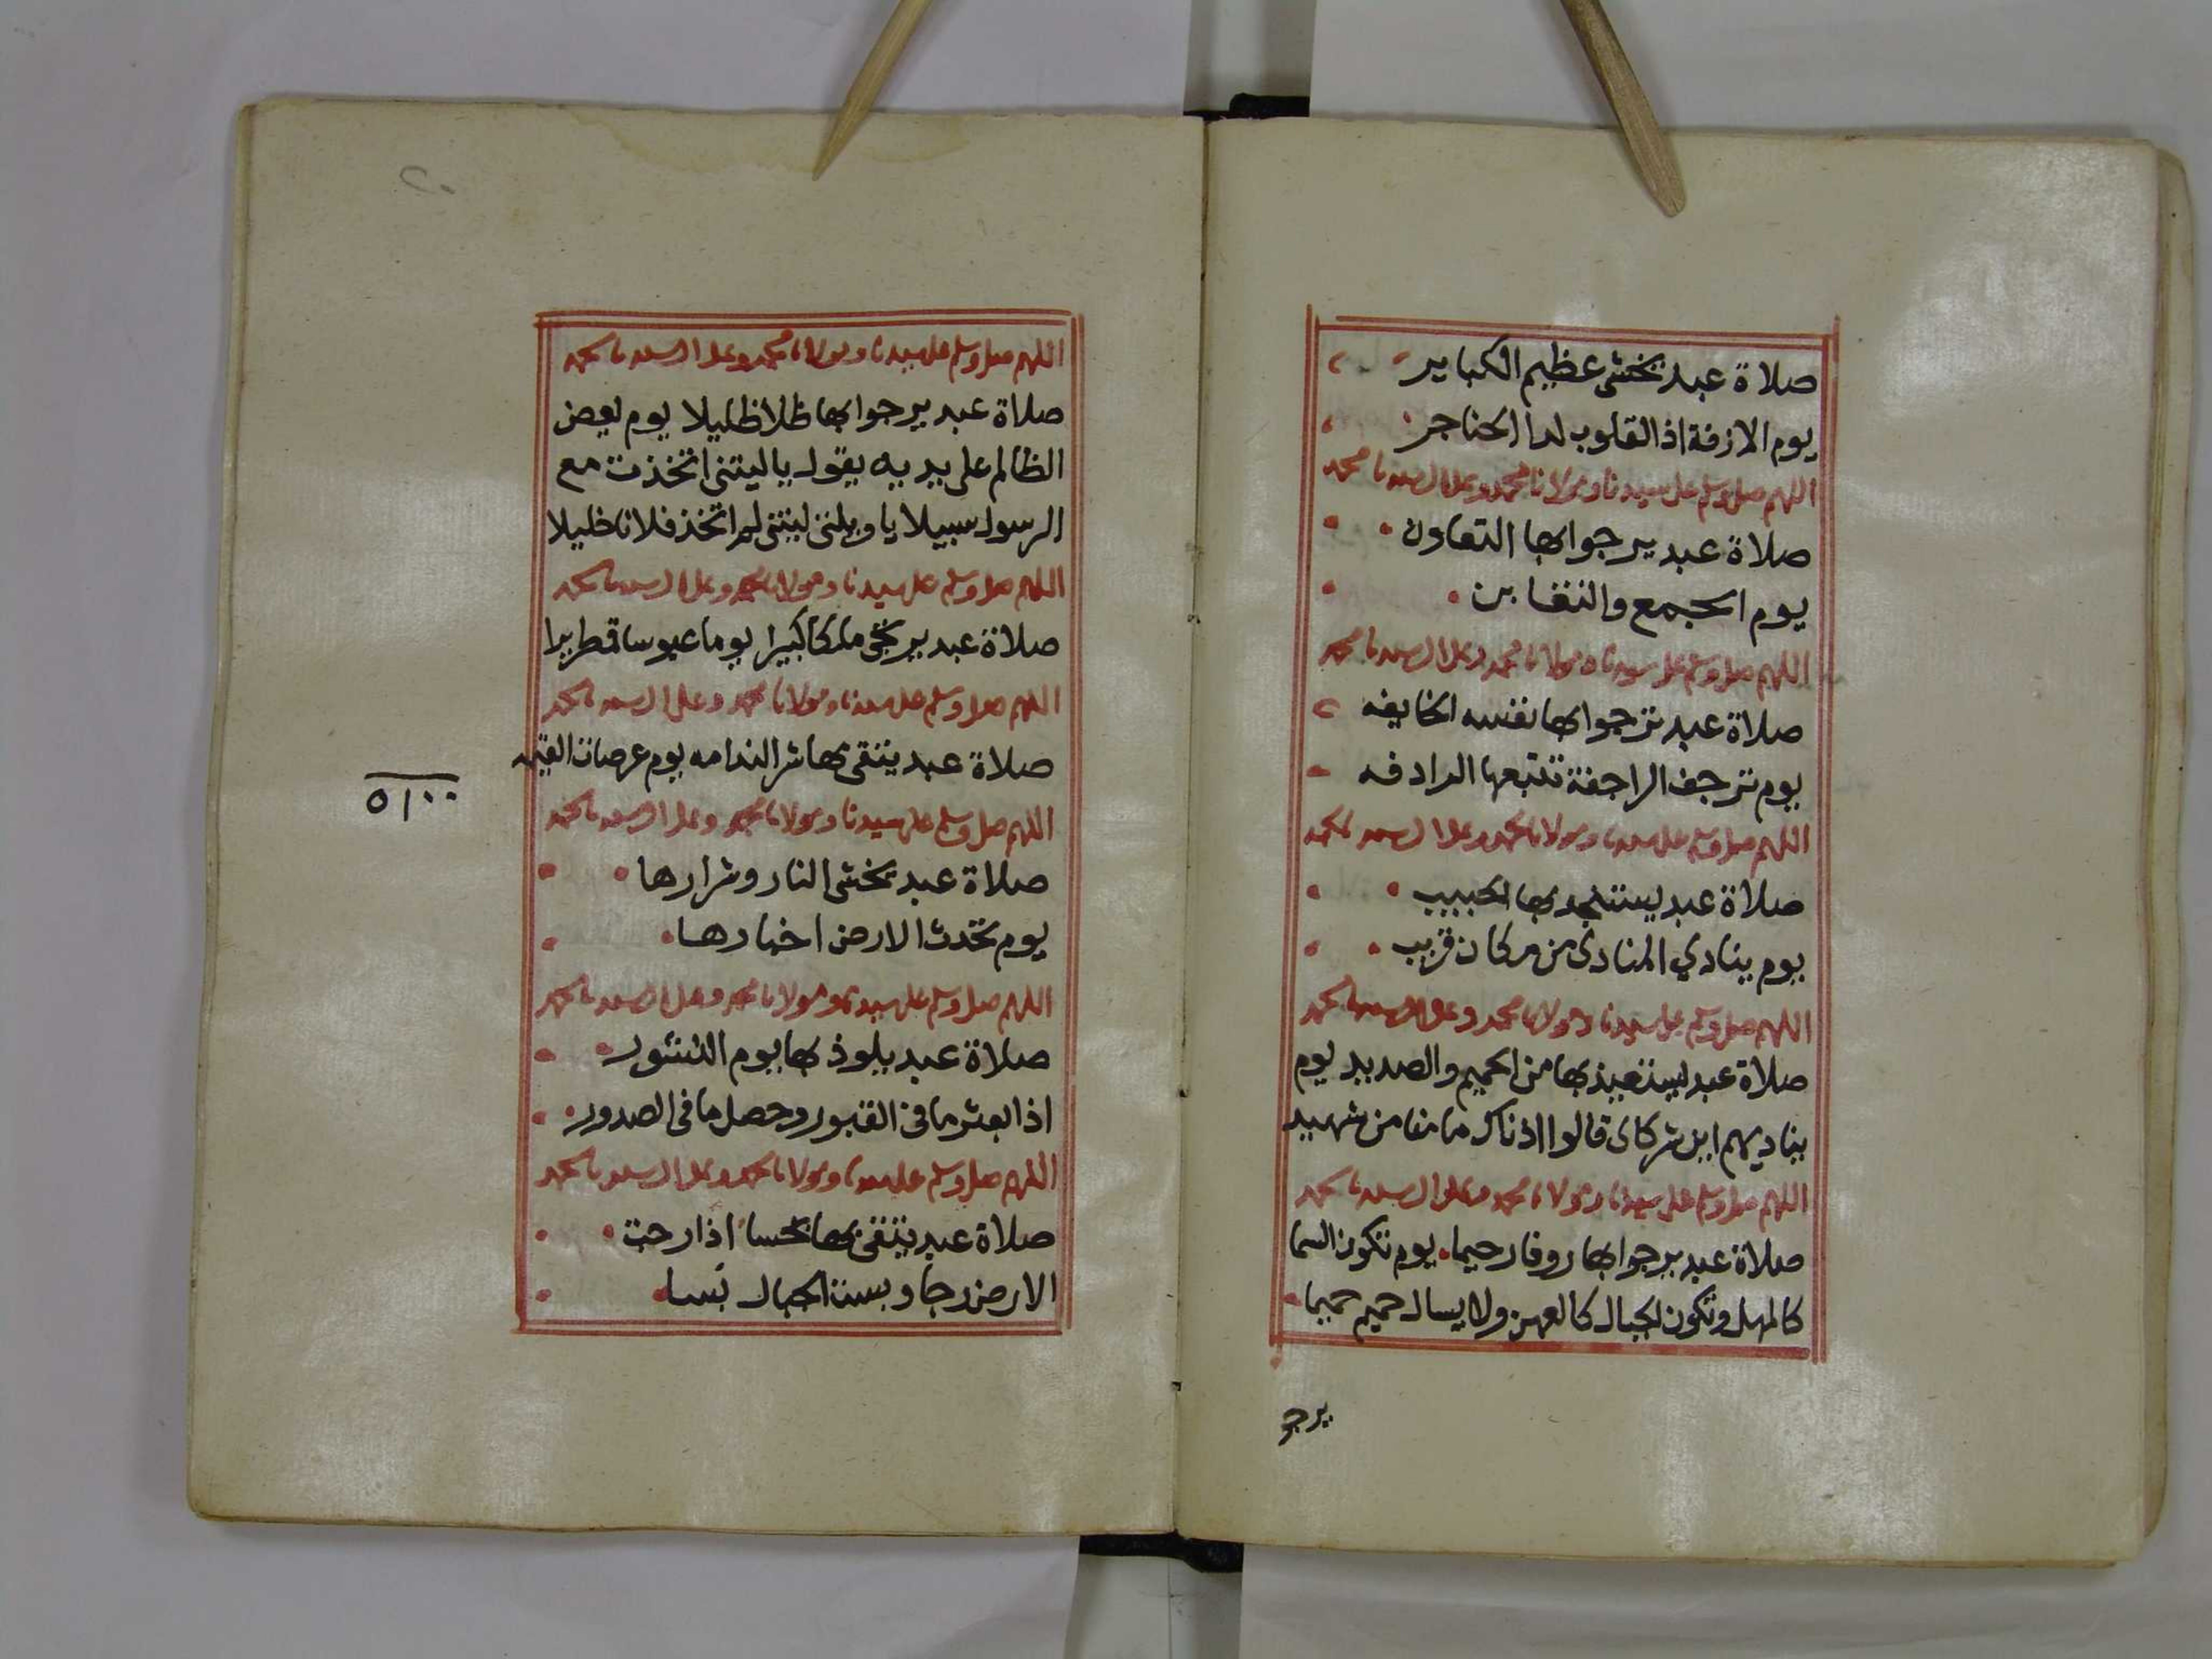 صلاة عبد يخشى عظيم الكباير
يوم الازفة اذ القلوب لدا الحناجر
اللهم صل وسلم على سيدنا ومولانا محمد وعلى ال سيدنا محمد
صلاة عبد يرجوا بها التعاون
يوم الجمع والتغابن
اللهم صل وسلم على سيدنا ومولانا محمد وعلى ال سيدنا محمد
صلاة عبد ترجوا بها نفسه الخايفه
يوم ترجف الراجفة تتبعها الرادفه
اللهم صل وسلم على سيدنا ومولانا محمد وعلى ال سيدنا محمد
صلاة عبد يستنجد بها الحبيب
يوم ينادي المنادى من مكان قريب
اللهم صل وسلم على سيدنا ومولانا محمد وعلى ال سيدنا محمد
صلاة عبد يستعيذ بها من الحميم والصديد يوم
يناديهم اين شركاى قالوا اذناك ما منا من شهيد
اللهم صل وسلم على سيدنا ومولانا محمد وعلى ال سيدنا محمد
صلاة عبد يرجوا بها روفا رحيما يوم تكون السما
كالمهل وتكون الجبال كالعهن ولا يسال حميم حميما
يرجو
٢٠
اللهم صل وسلم على سيدنا ومولانا محمد وعلى ال سيدنا محمد
صلاة عبد يرجوا بها ظلا ظليلا يوم يعض
الظالم على يديه يقول ياليتنى اتخذت مع
الرسول سبيلا يا ويلتى ليتنى لم اتخذ فلانا خليلا
اللهم صل وسلم على سيدنا ومولانا محمد وعلى ال سيدنا محمد
صلاة عبد يرتجى ملكا كبيرا يوما عبوسا قمطريرا
اللهم صل وسلم على سيدنا ومولانا محمد وعلى ال سيدنا محمد
صلاة عبد يتقى بها شر الندامه يوم عرصات القيمه
اللهم صل وسلم على سيدنا ومولانا محمد وعلى ال سيدنا محمد
صلاة عبد يخشى النار وشرارها
يوم تحدث الارض اخبارها
اللهم صل وسلم على سيدنا ومولانا محمد وعلى ال سيدنا محمد
صلاة عبد يلوذ بها يوم النشور
اذا بعثر ما فى القبور وحصل ما فى الصدور
اللهم صل وسلم على سيدنا ومولانا محمد وعلى ال سيدنا محمد
صلاة عبد يتقى بها نحسا اذا رجت
الارض رجا وبست الجبال بسا
٥١٠٠